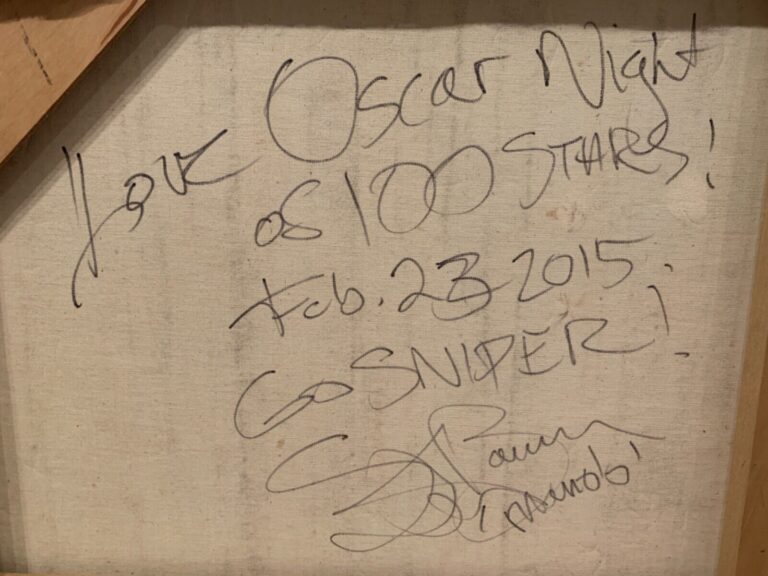 Love Oscar Night
os 100 STARS!
Feb. 23 2015.
Go SNIPER!